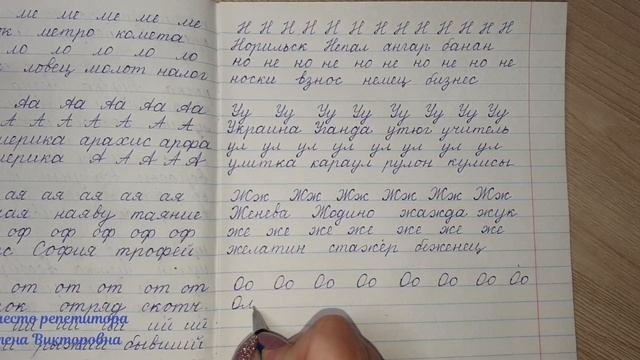 ме ме ме ме ме
метро комета
ло ло ло ло ло
ловец молот налог
Аа Аа Аа Аа Аа
А А А А А А
арахис арфа
А А А А А
ая ая ая ая
наяву таяние
оф оф оф оф оф
София трофей
от от от от от
отряд скотч
ий ий ий ий ий
рыжий бывший
Н Н Н Н Н Н Н Н Н Н Н Н Н
Норильск Непал ангар банан
но не но не но не но не но не
носки взнос немец бизнес
Уу Уу Уу Уу Уу Уу Уу Уу
Украина Уганда утюг учитель
ул ул ул ул ул ул ул ул
улитка караул рулон кулисы
Жж Жж Жж Жж Жж Жж
Женева Жодино жажда жук
же же же же же же же
желатин стажёр беженец
Оо Оо Оо Оо Оо Оо Оо Оо
Ол
место репетитора
Викторовна